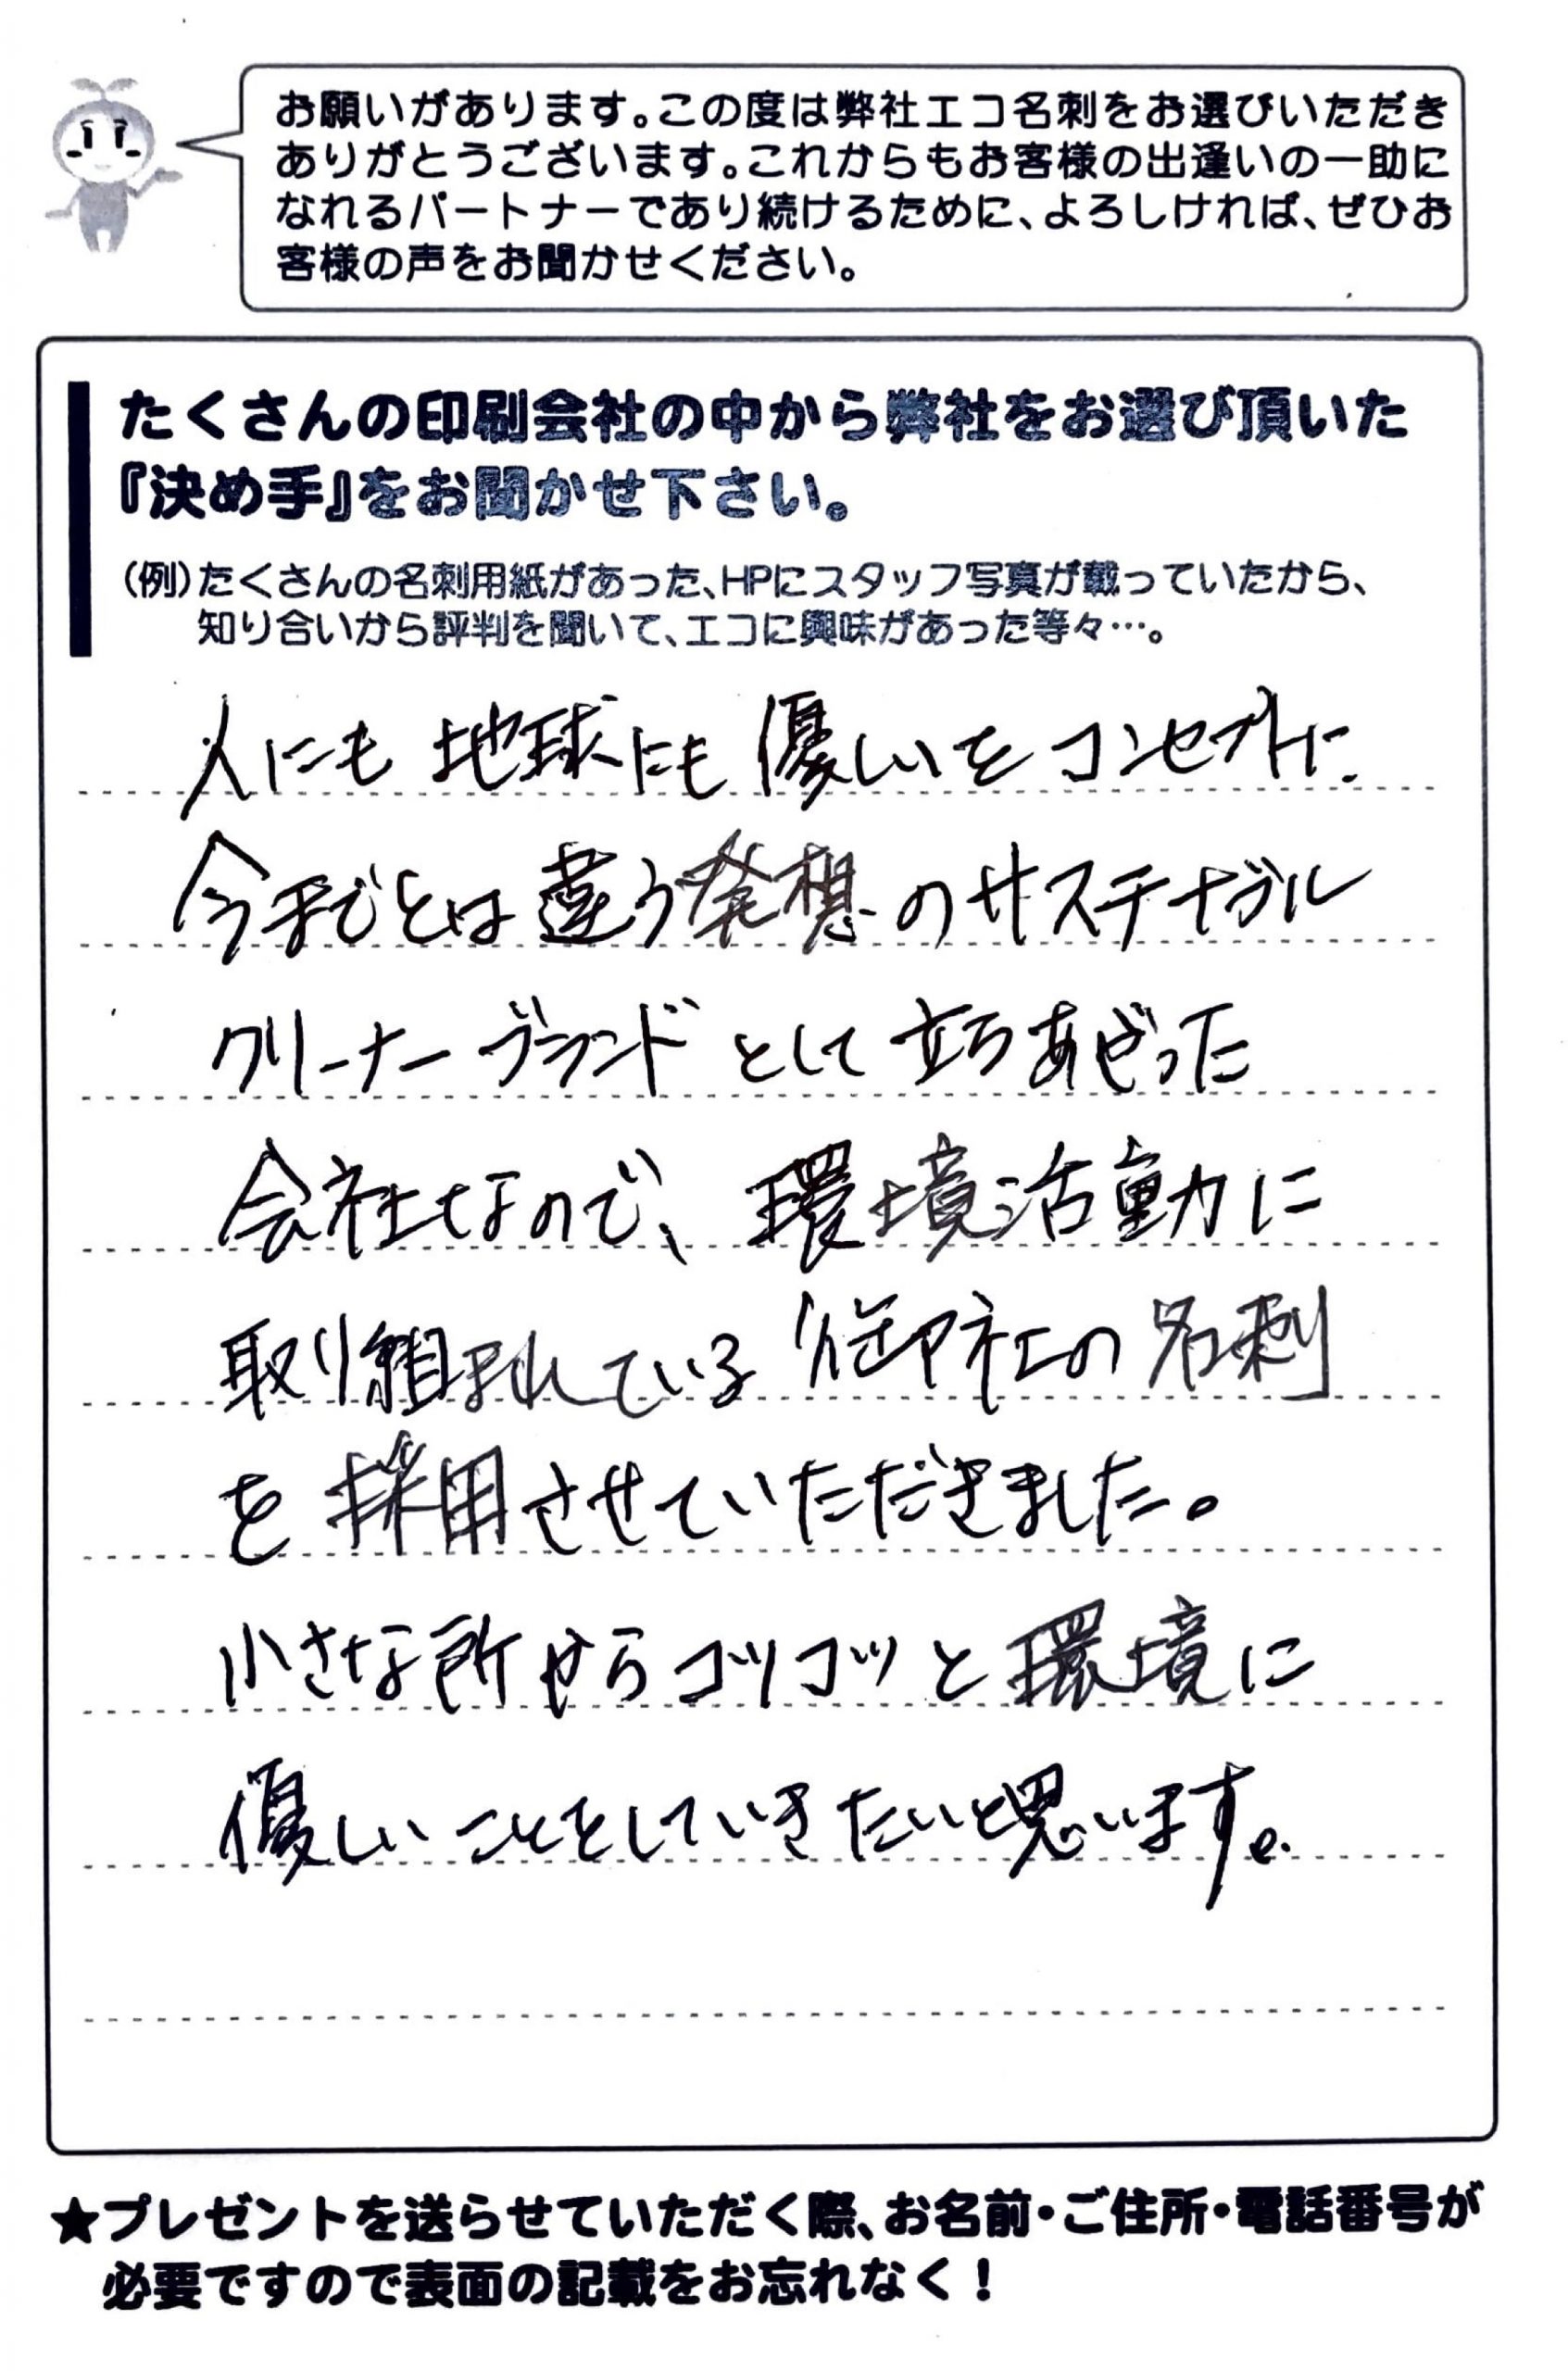 お願いがあります。この度は弊社エコ名刺をお選びいただき
ありがとうございます。これからもお客様の出逢いの一助に
なれるパートナーであり続けるために、よろしければ、ぜひお
客様の声をお聞かせください。
たくさんの印刷会社の中から弊社をお選び頂いた
『決め手』をお聞かせ下さい。
(例)たくさんの名刺用紙があった、HPにスタッフ写真が載っていたから、
知り合いから評判を聞いて、エコに興味があった等々…。
人にも地球にも優しいをコンセプトに
今までとは違う発想のサステナブル
クリーナーブランドとして立ちあがった
会社なので、環境活動に
取り組まれている御社の名刺
を採用させていただきました。
小さな所からコツコツと環境に
優しいことをしていきたいと思います。
★プレゼントを送らせていただく際、お名前・ご住所・電話番号が
必要ですので表面の記載をお忘れなく!